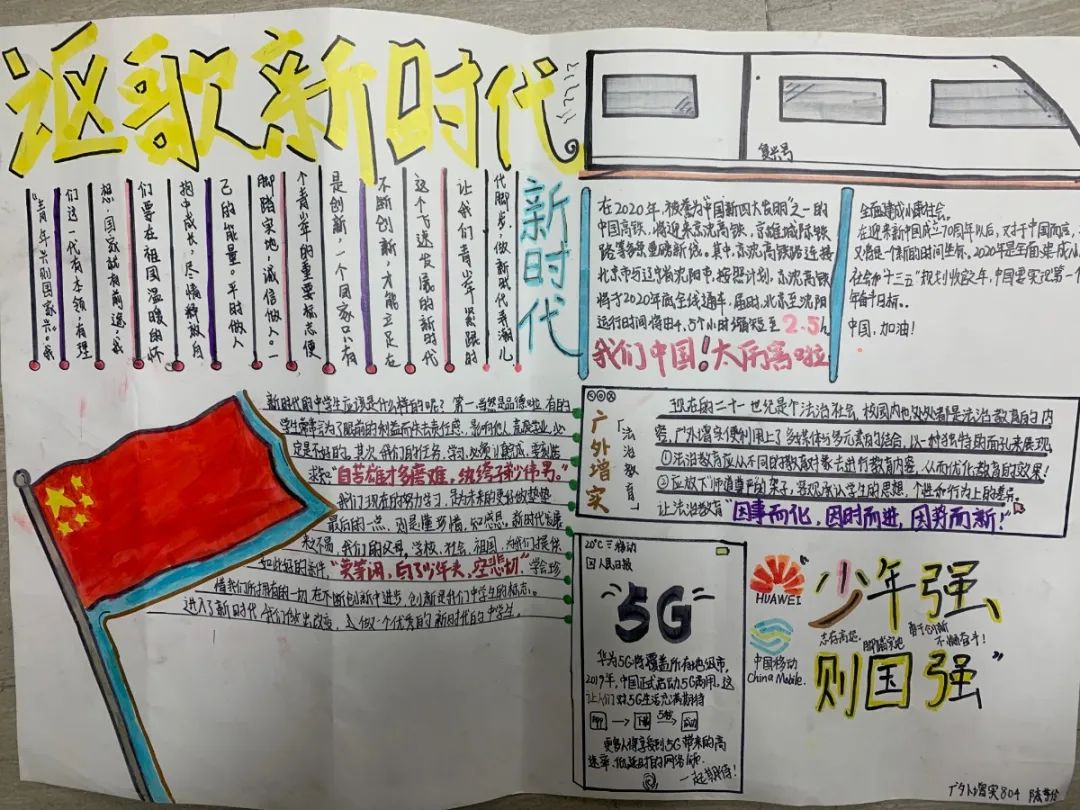 讴歌新时代
复兴号
新时代
“青年兴则国家兴。”我
们这一代有本领，有理
想，国家就有前途，我
们要在祖国温暖的怀
抱中成长，尽情释放自
己的能量。平时做人
脚踏实地，诚信做人。一
个青少年的重要标志便
是创新，一个国家只有
不断创新，才能立足在
这个飞速发展的新时代
让我们青少年紧跟时
代脚步，做新时代弄潮儿
在2020年，被誉为“中国新四大发明”之一的
中国高铁，将迎来京沈高铁，京雄城际铁
路等多条重磅新线。其中，京沈高铁路连接
北京市与辽宁省沈阳市，按照计划，京沈高铁
将于2020年底全线通车，届时，北京至沈阳
运行时间将由4.5个小时缩短至2.5h
我们中国！太厉害啦
全面建成小康社会。
在迎来新中国成立70周年以后，又对于中国而言，
又将是一个新的时间坐标，2020年是全面建成小
社会和“十三五”规划收官之年，中国要实现第一个
年奋斗目标。
中国，加油！
新时代的中学生应该是什么样的呢？第一，当然是品德啦，有的
学生常常会为了眼前的利益而失去责任感，影响他人，
定是不好的。其次，我们身的任务，学习，必须认真完成，
“自古雄才多磨难，纨绔子弟少伟男。”
我们现在的努力学习，是为未来的更好做垫垫
最后的一点，则是懂珍惜，知感恩，新时代发展
来之不易，我们的父母，学校，社会，祖国，为我们提供
如此好的条件，“莫等闲，白了少年头，空悲切”学会珍
惜我们所拥有的一切，在不断创新中进步，创新是我们中学生的标志。
进入了新时代，我们做出改变，去做一个优秀的新时代的中学生。
广外增实
「法治教育」
现在的二十一世纪是个法治社会，校园内也处处都是法治教育的内
容，广外增实便利用上了多媒体等多元素的结合，以一种独特的面孔来展现
①法治教育应从不同的教育对象去进行教育内容，从而优化教育的效果！
②应放下师道尊严的架子，客观承认学生的思想，个性和行为上的差异。
让法治教育“因事而化，因时而进，因势而新！”
20℃ 移动
人民日报
“5G”
华为5G将覆盖所有地级市，
2019年，中国正式启动5G商用，这
让人们对5G生活充满期待
APP → 下载 5秒→ 启动
更多人将享受到5G带来的高
速率，低延时的网络体验。
一起期待！
HUAWEI
中国移动
China Mobile.
“少年强、
志存高远、脚踏实地、勇于创新、不懈奋斗！
则国强”
广外增实804